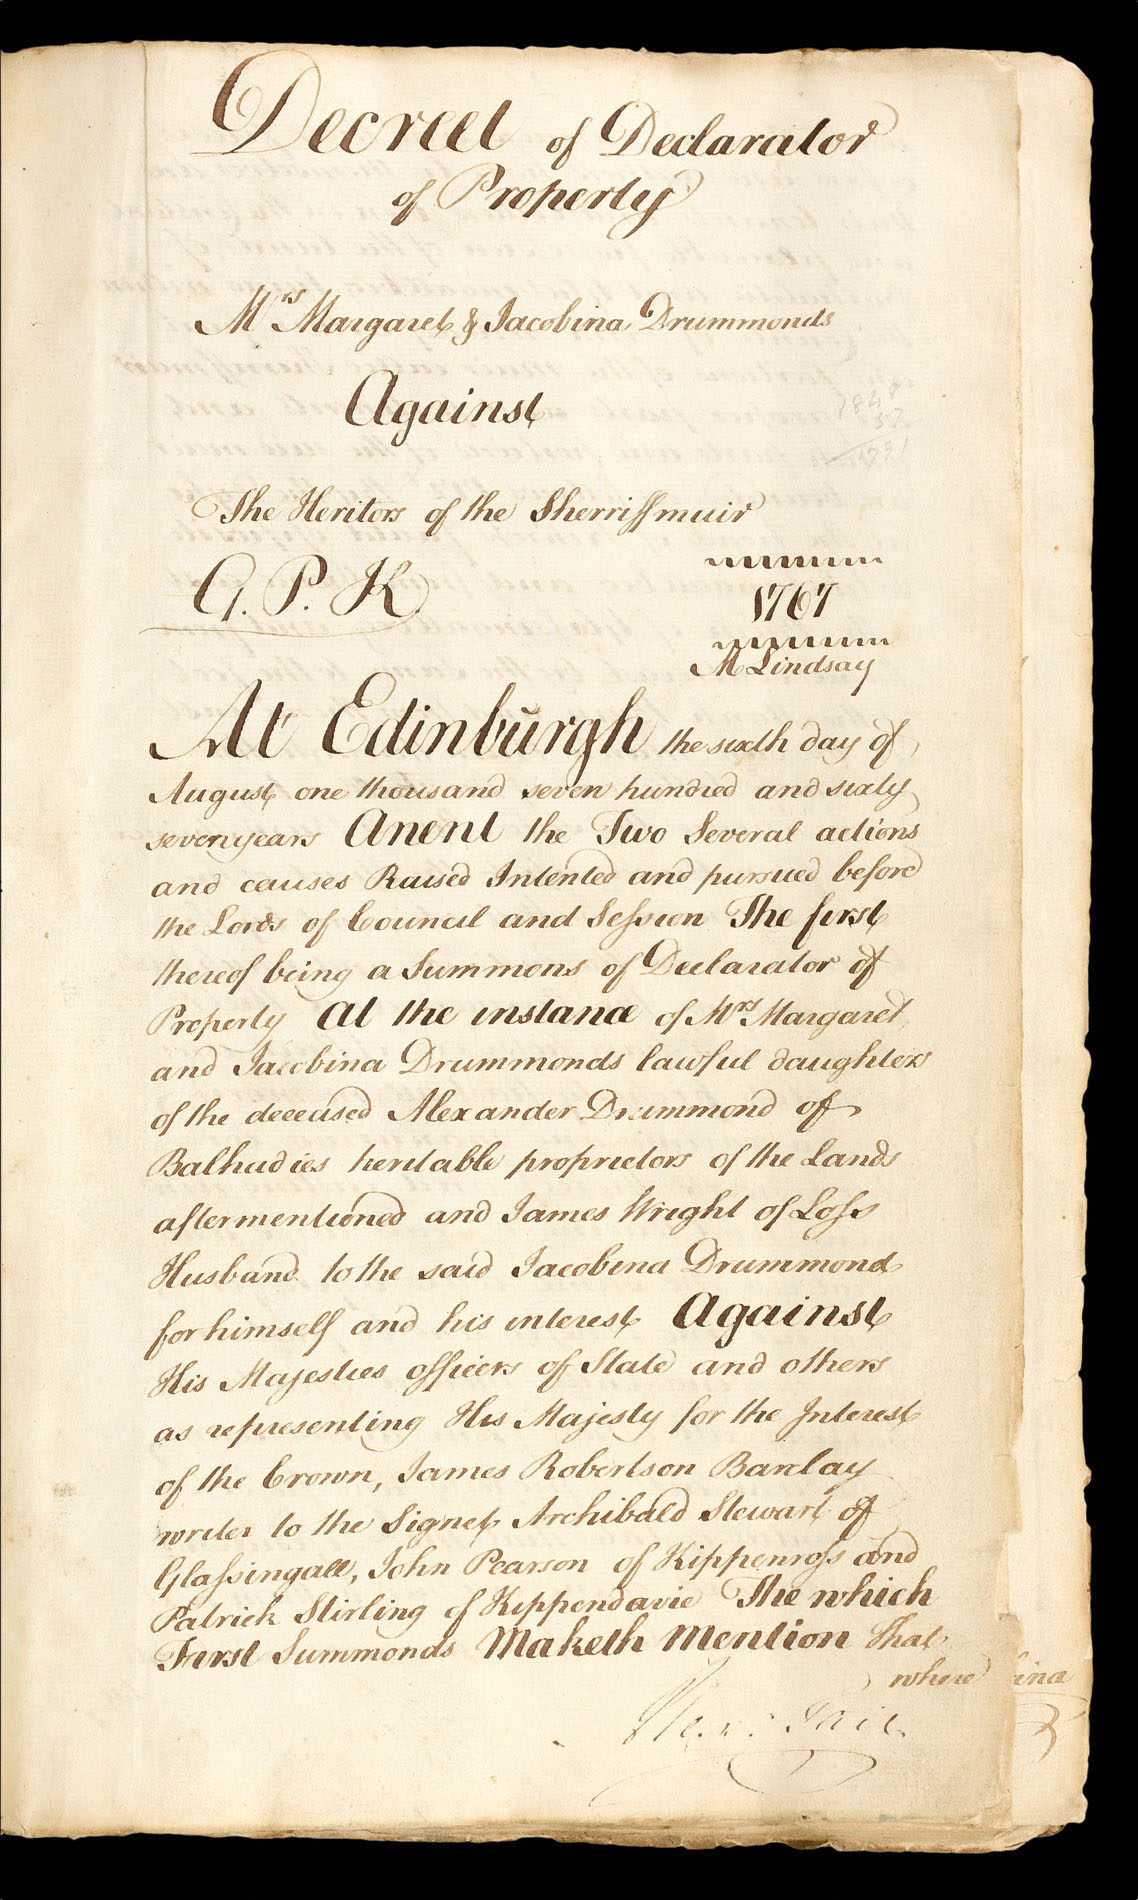 Decreet of Declarator
of Property
Mrs Margaret & Jacobina Drummonds
Against
1848
57
1791
The Heritors of the Sherriffmuir
G. P. K
1767
M Lindsay
At Edinburgh the sixth day of
August one thousand seven hundred and sixty
seven years Anent the Two Several actions
and causes Raised Intented and pursued before
the Lords of Council and Session The first
thereof being a Summons of Declarator of
Property At the instance of Mrs Margaret
and Jacobina Drummonds lawful daughters
of the deceased Alexander Drummond of
Balhadies heritable proprietors of the Lands
aftermentioned and James Wright of Loss
Husband to the said Jacobina Drummond
for himself and his interest Against
His Majesties officers of State and others
as representing His Majesty for the Interest
of the Crown, James Robertson Barclay
writer to the Signet Archibald Stewart of
Glassingall, John Pearson of Kippenross and
Patrick Stirling of Kippendavie The which
First Summonds Maketh Mention That
where
ina
Alexr Tait